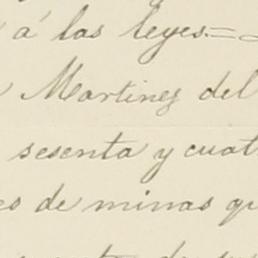 á las leyes=
Martinez del
sesenta y cuat
es de minas qu